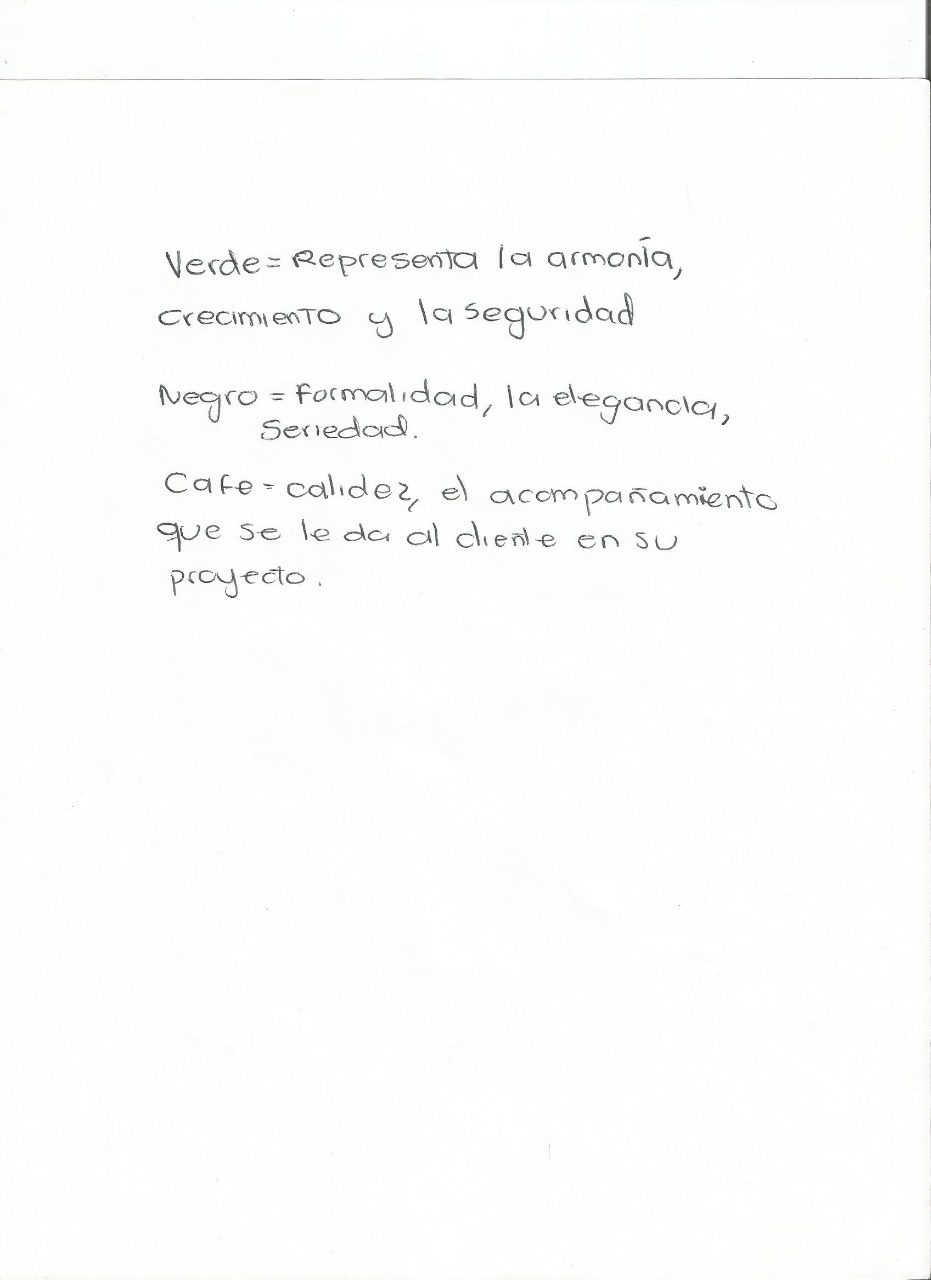 Verde = Representa la armonía,
crecimiento y la seguridad
Negro = Formalidad, la elegancia,
Seriedad.
Cafe = calidez, el acompañamiento
que se le da al cliente en su
proyecto.